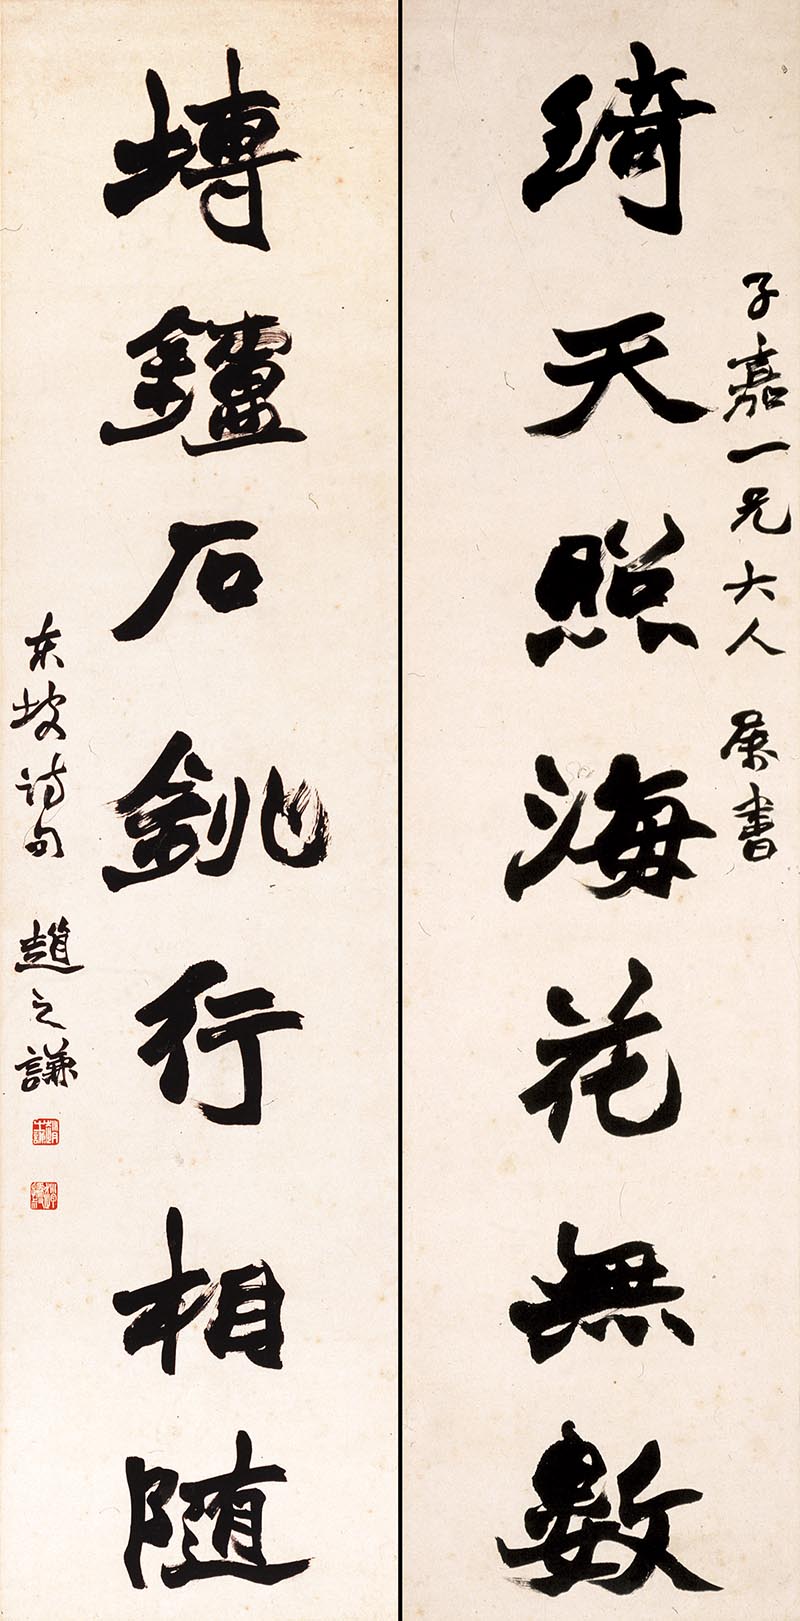 琦天照海花無數
子嘉一兄大人 属書
塼鑪石銚行相隨
東坡詩句 趙之謙